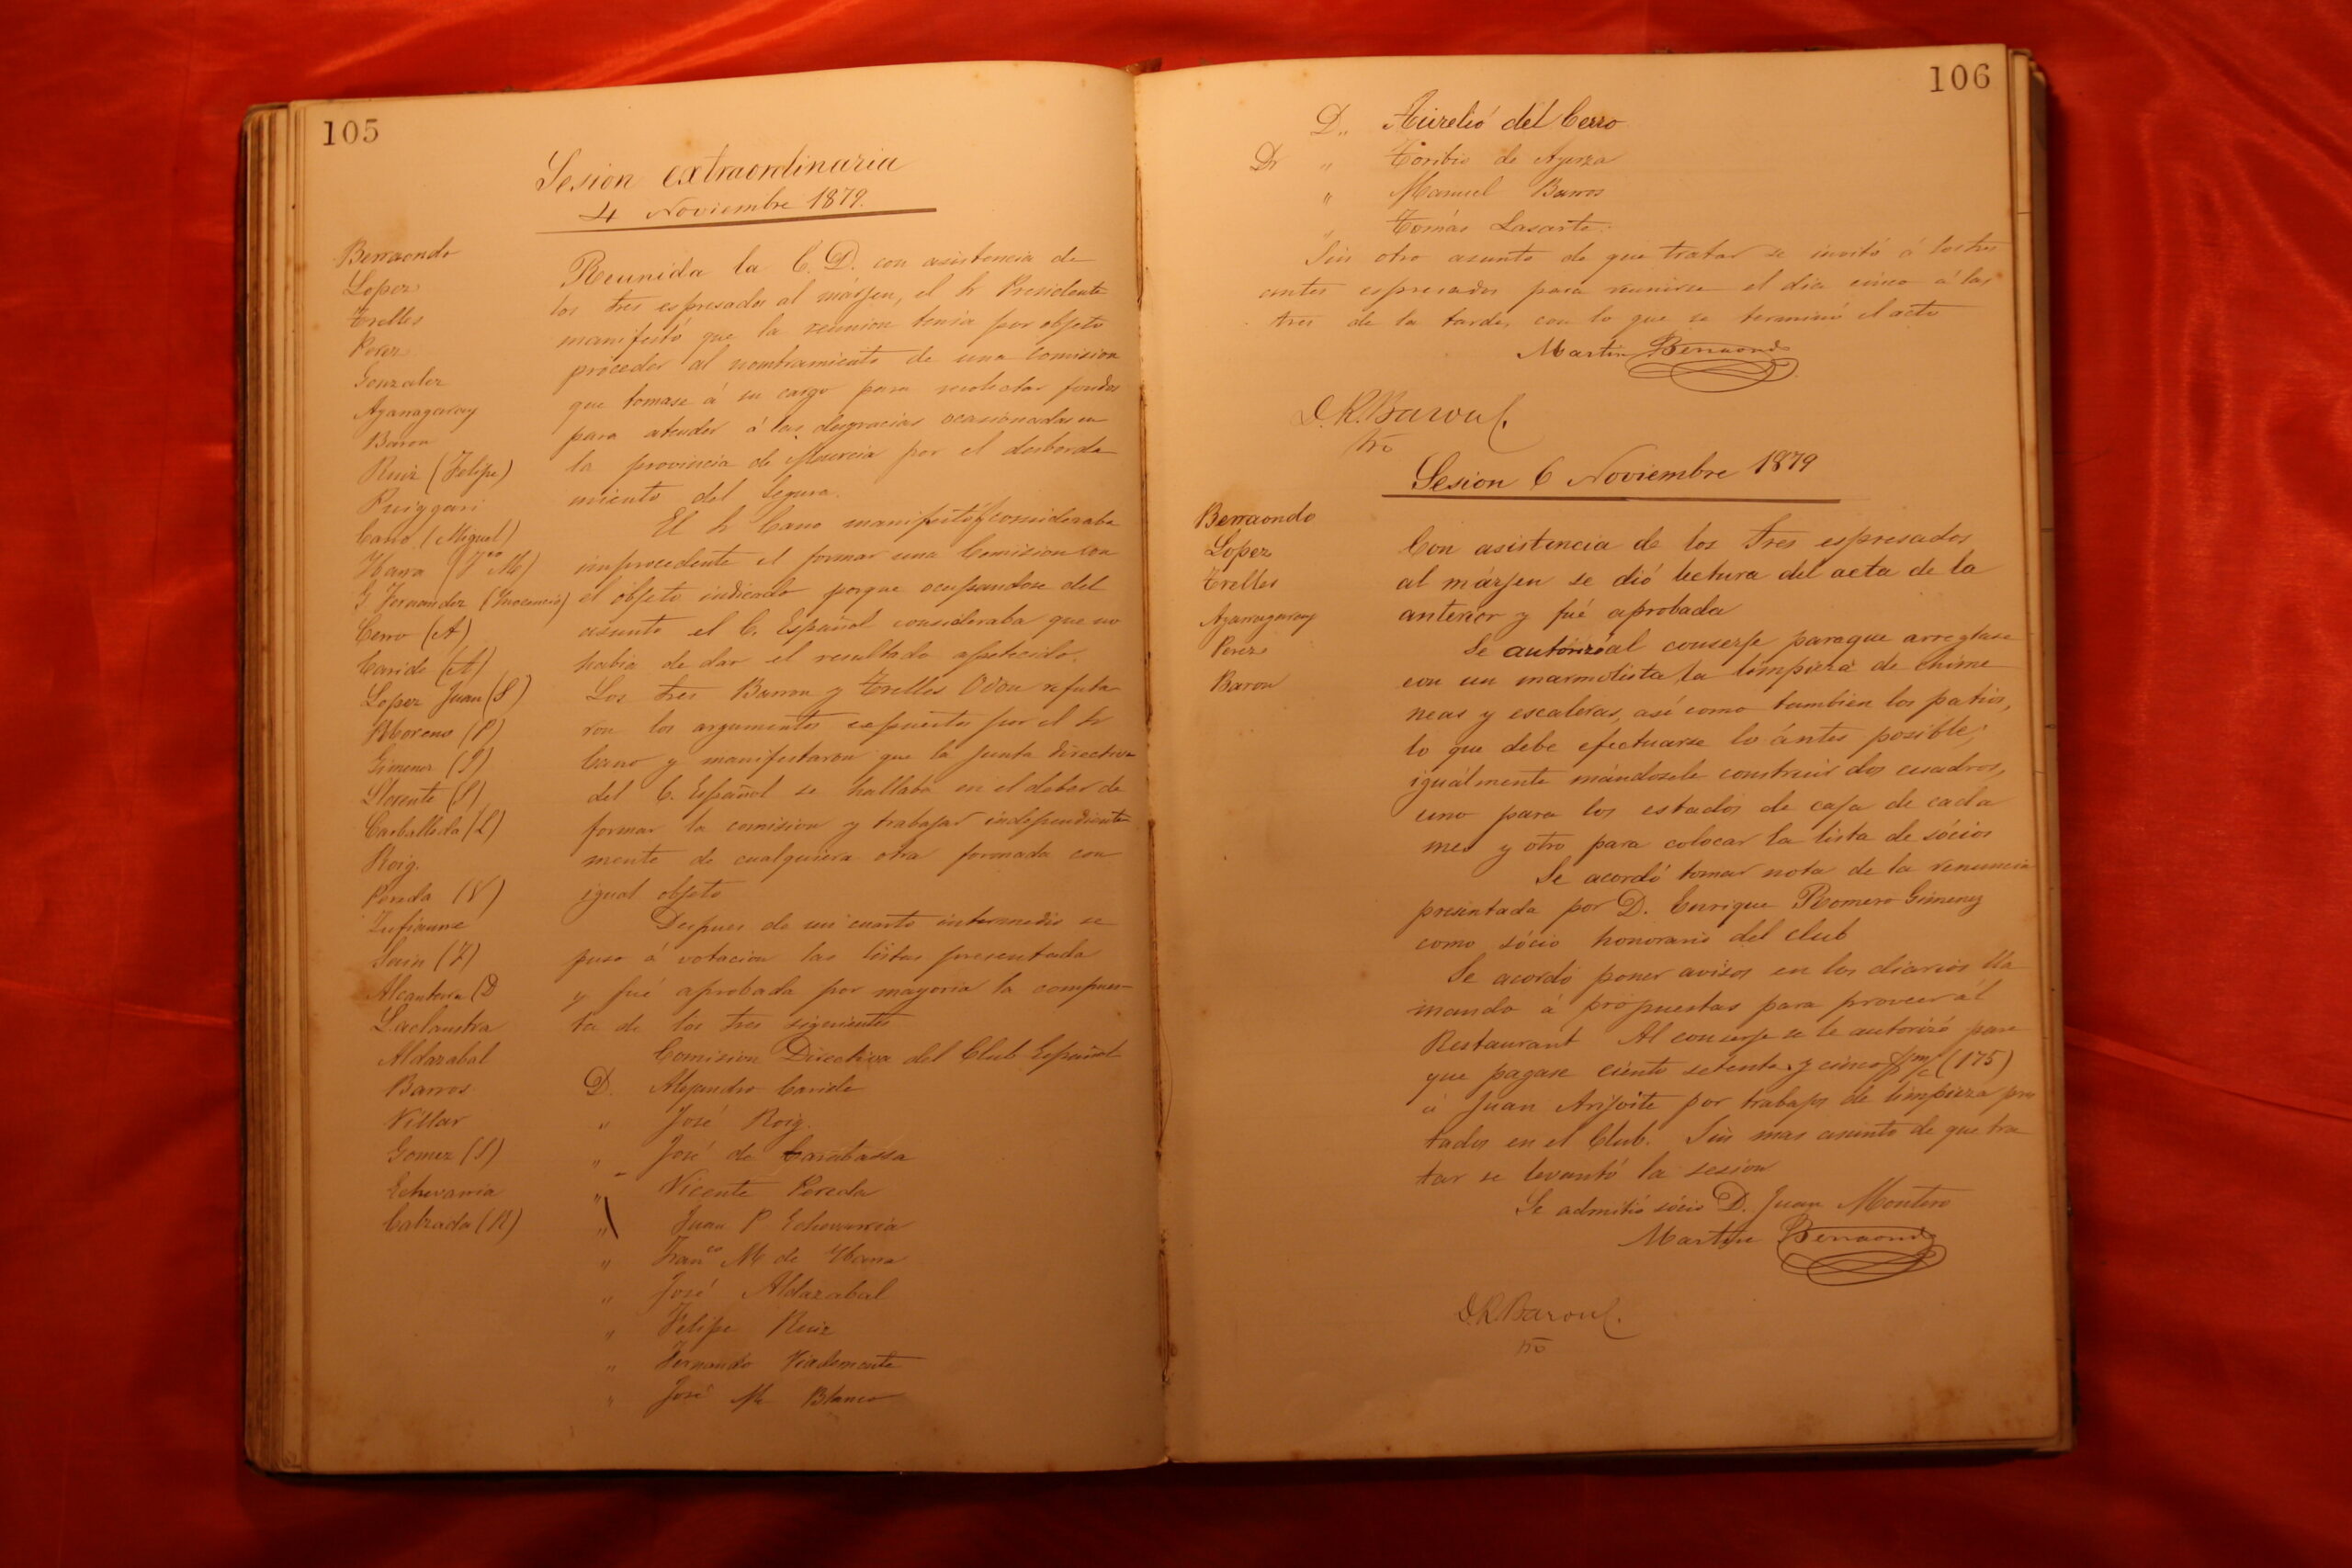 105
Sesion extraordinaria
4 Noviembre 1879.
Berraondo
Lopez
Trelles
Perez
Gonzalez
Azarragaray
Baron
Ruiz (Felipe)
Puiggari
Cano (Miguel)
Ybarra (Fco M)
G Fernandez (Inocencio)
Cerro (A)
Caride (A)
Lopez Juan (S)
Moreno (P)
Gimenez
Llorente (S)
Carballeda (L)
Roig.
Pereda (V)
Zufiaurre
Sain
Alcantara (D
Laclaustra
Aldazabal
Barros
Villar
Gomez (S)
Echevarria
Calzada (R)
Reunida la C. D. con asistencia de
los Sres espresados al márjen, el Sr Presidente
manifestó que la reunion tenia por objeto
proceder al nombramiento de una comision
que tomase á su cargo para recolectar fondos
para atender á las desgracias ocasionadas en
la provincia de Murcia por el desborda
miento del Segura.
El Sr Cano manifestó q consideraba
improcedente el formar una Comision con
el objeto indicado porque ocupandose del
asunto el C. Español consideraba que no
habia de dar el resultado apetecido.
Los Sres Baron y Trelles Odon refuta
ron los argumentos espuestos por el Sr
Cano y manifestaron que la Junta Directiva
del C. Español se hallaba en el deber de
formar la comision y trabajar independiente
mente de cualquiera otra formada con
igual objeto
Despues de un cuarto intermedio se
puso á votacion las listas presentada
y fué aprobada por mayoria la compues
ta de los Sres siguientes
Comision Directiva del Club Español
D. Alejandro Caride
" José Roig.
" José de Carabassa
" Vicente Pereda
" Juan P Echevarria
" Franco M de Ybarra
" José Aldazabal
" Felipe Ruiz
" Fernando Viademonte
" José M Blanco
106
D.. Aurelió del Cerro
Dr " Toribio de Ayerza
" Manuel Barros
" Tomás Lasarte.
Sin otro asunto de que tratar se invitó á los Sres
antes espresados para reunirse el dia cinco á las
tres de la tarde, con lo que se terminó el acto
Martin Berraondo
D.R. Baron
Srio
Sesion 6 Noviembre 1879
Berraondo
Lopez
Trelles
Azarragaray
Perez
Baron
Con asistencia de los Sres espresados
al márjen se dió lectura del acta de la
anterior y fué aprobada
Se autorizó al conserje para que arreglase
con un marmolista la limpieza de chime
neas y escaleras, así como tambien los patios,
lo que debe efectuarse lo ántes posible;
iguálmente mándosele construir dos cuadros,
uno para los estados de caja de cada
mes y otro para colocar la lista de sócios
Se acordó tomar nota de la renuncia
presentada por D. Enrique Romero Gimenez
como sócio honorario del club
Se acordó poner avisos en los diarios lla
mando á propuestas para proveer al
Restaurant Al conserje se le autorizó para
que pagase ciento setenta y cinco $ m/c (175)
á Juan Arijoite por trabajos de limpieza pres
tados en el Club. Sin mas asunto de que tra
tar se levantó la sesion
Se admitió sócio D. Juan Montero
Martin Berraondo
D.R. Baron
Srio